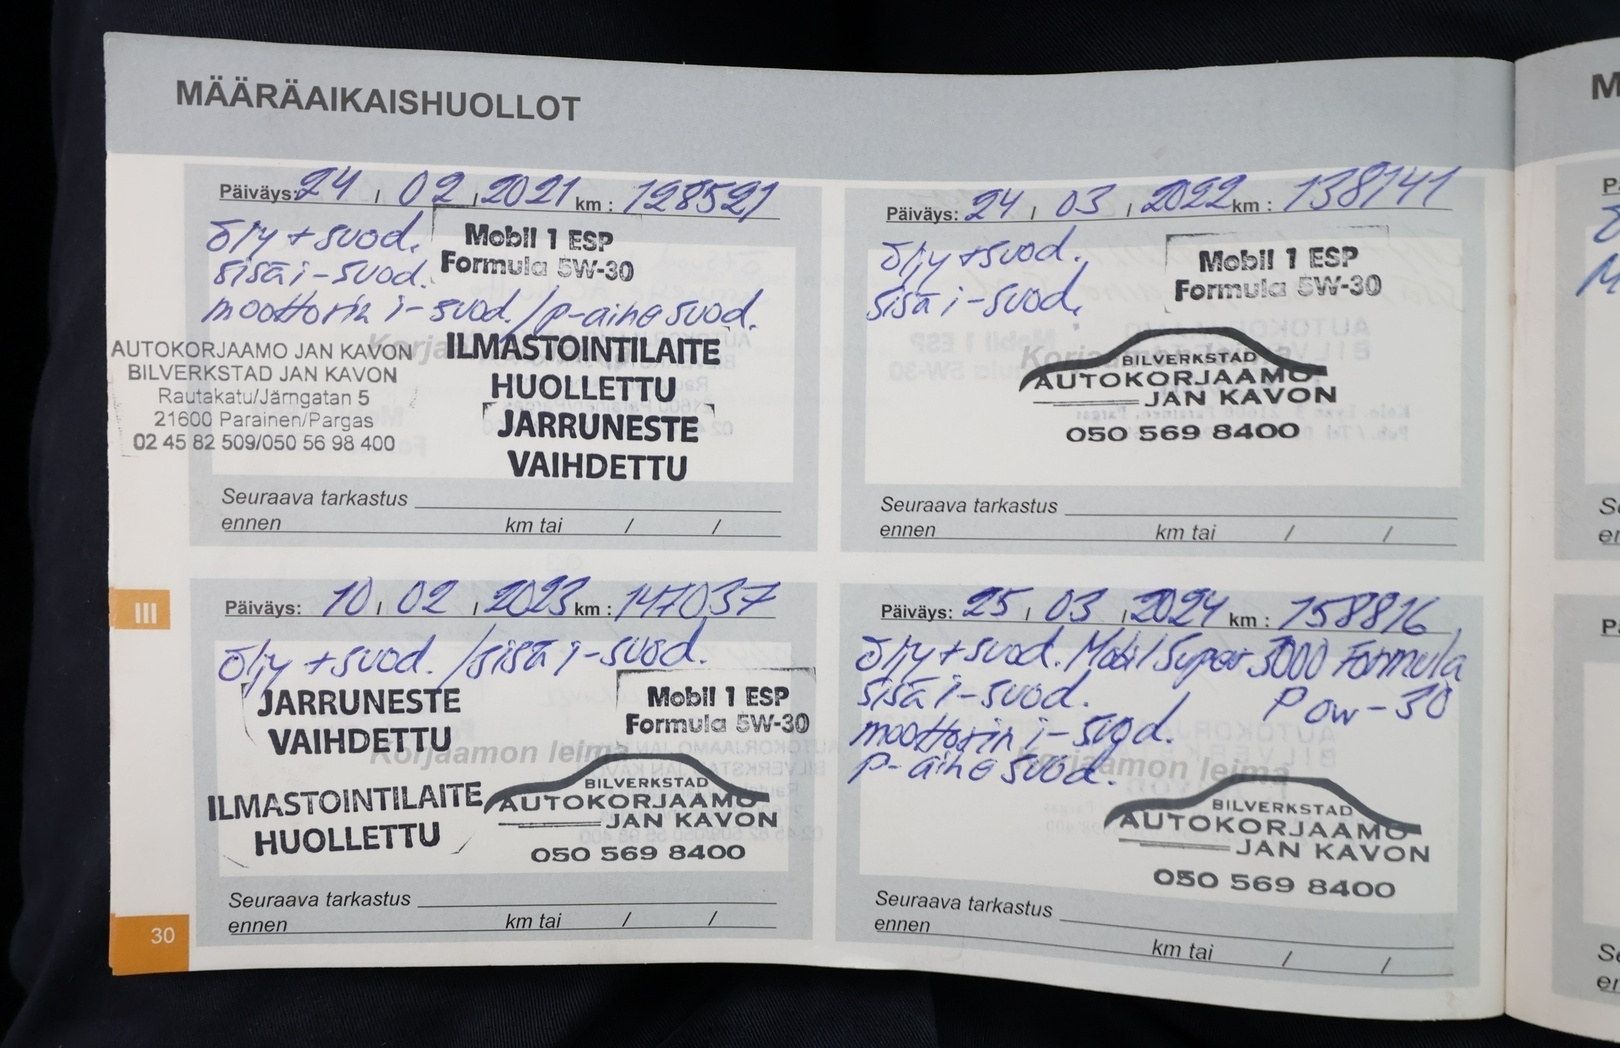 MÄÄRÄAIKAISHUOLLOT
Päiväys: 24 / 02 / 2021 km : 128521
öljy + suod.
Mobil 1 ESP
Formula 5W-30
sisä i-suod.
moottorin i-suod. / p-aine suod.
AUTOKORJAAMO JAN KAVON
BILVERKSTAD JAN KAVON
Rautakatu/Järngatan 5
21600 Parainen/Pargas
02 45 82 509/050 56 98 400
ILMASTOINTILAITE
HUOLLETTU
JARRUNESTE
VAIHDETTU
Seuraava tarkastus
ennen km tai / /
Päiväys: 24 / 03 / 2022 km : 138141
öljy + suod.
sisä i-suod.
Mobil 1 ESP
Formula 5W-30
BILVERKSTAD
AUTOKORJAAMO
JAN KAVON
050 569 8400
Seuraava tarkastus
ennen km tai / /
III
Päiväys: 10 / 02 / 2023 km : 147037
öljy + suod. / sisä i-suod.
JARRUNESTE
VAIHDETTU
Mobil 1 ESP
Formula 5W-30
Korjaamon leima
ILMASTOINTILAITE
HUOLLETTU
BILVERKSTAD
AUTOKORJAAMO
JAN KAVON
050 569 8400
Seuraava tarkastus
ennen km tai / /
Päiväys: 25 / 03 / 2024 km : 158816
öljy + suod. Mobil Super 3000 Formula
P 0W-30
sisä i-suod.
moottorin i-suod.
p-aine suod.
Korjaamon leima
BILVERKSTAD
AUTOKORJAAMO
JAN KAVON
050 569 8400
Seuraava tarkastus
ennen km tai / /
30